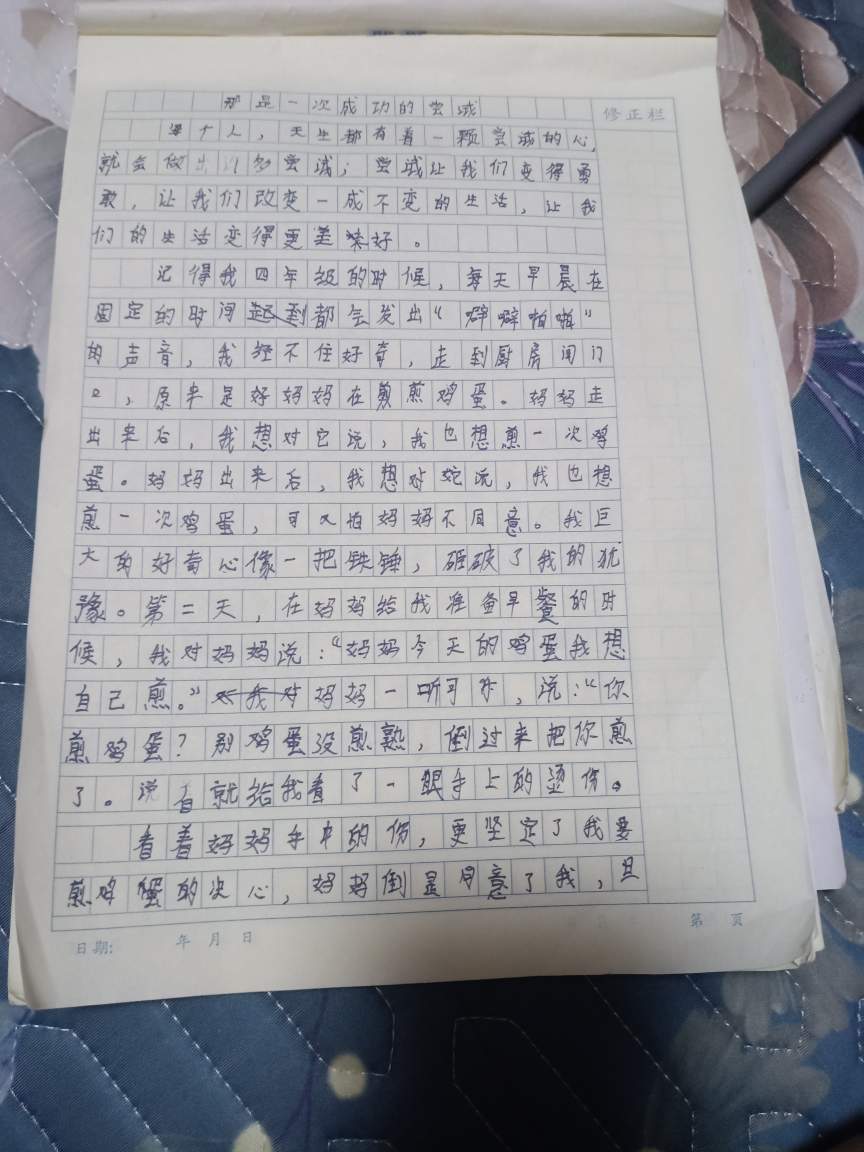 那是一次成功的尝试
修正栏
每个人，天生都有着一颗尝试的心，
就会做出许多尝试；尝试让我们变得勇
敢，让我们改变一成不变的生活，让我
们的生活变得更美好。
记得我四年级的时候，每天早晨在
固定的时间都会发出“噼噼啪啪”
的声音，我经不住好奇，走到厨房门
口，原来是好妈妈在煎鸡蛋。妈妈走
出来后，我想对它说，我也想煎一次鸡
蛋。妈妈出来后，我想对她说，我也想
煎一次鸡蛋，可又怕妈妈不同意。我巨
大的好奇心像一把铁锤，砸破了我的犹
豫。第二天，在妈妈给我准备早餐的时
候，我对妈妈说：“妈妈今天的鸡蛋我想
自己煎。”妈妈一听，说：“你
煎鸡蛋？别鸡蛋没煎熟，倒过来把你煎
了。说着就给我看了一眼手上的烫伤。
看着妈妈手中的伤，更坚定了我要
煎鸡蛋的决心，妈妈倒是同意了我，且
日期： 年 月 日
第 页